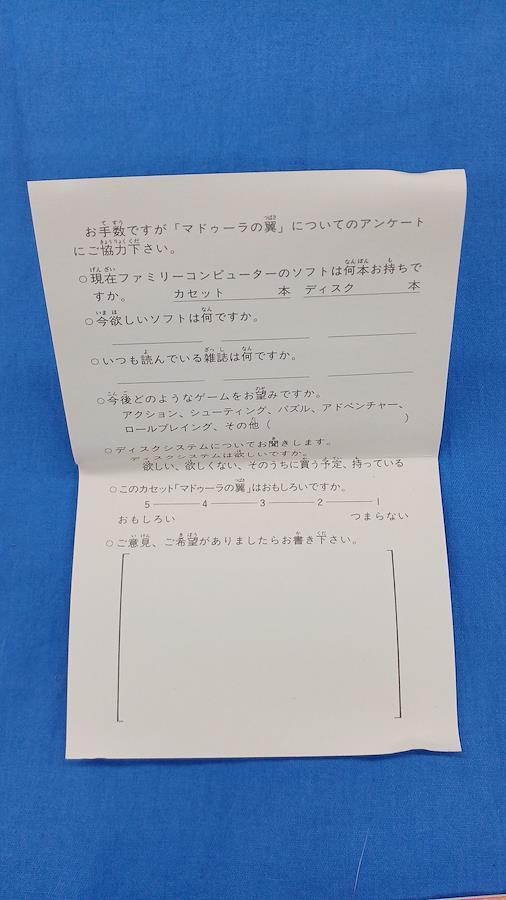 お手数ですが「マドゥーラの翼」についてのアンケート
にご協力下さい。
○現在ファミリーコンピューターのソフトは何本お持ちで
すか。 カセット 本 ディスク 本
○今欲しいソフトは何ですか。
○いつも読んでいる雑誌は何ですか。
○今後どのようなゲームをお望みですか。
アクション、シューティング、パズル、アドベンチャー、
ロールプレイング、その他( )
○ディスクシステムについてお聞きします。
ディスクシステムは欲しいですか。
欲しい、欲しくない、そのうちに買う予定、持っている
○このカセット「マドゥーラの翼」はおもしろいですか。
5 ─── 4 ─── 3 ─── 2 ─── 1
おもしろい つまらない
○ご意見、ご希望がありましたらお書き下さい。